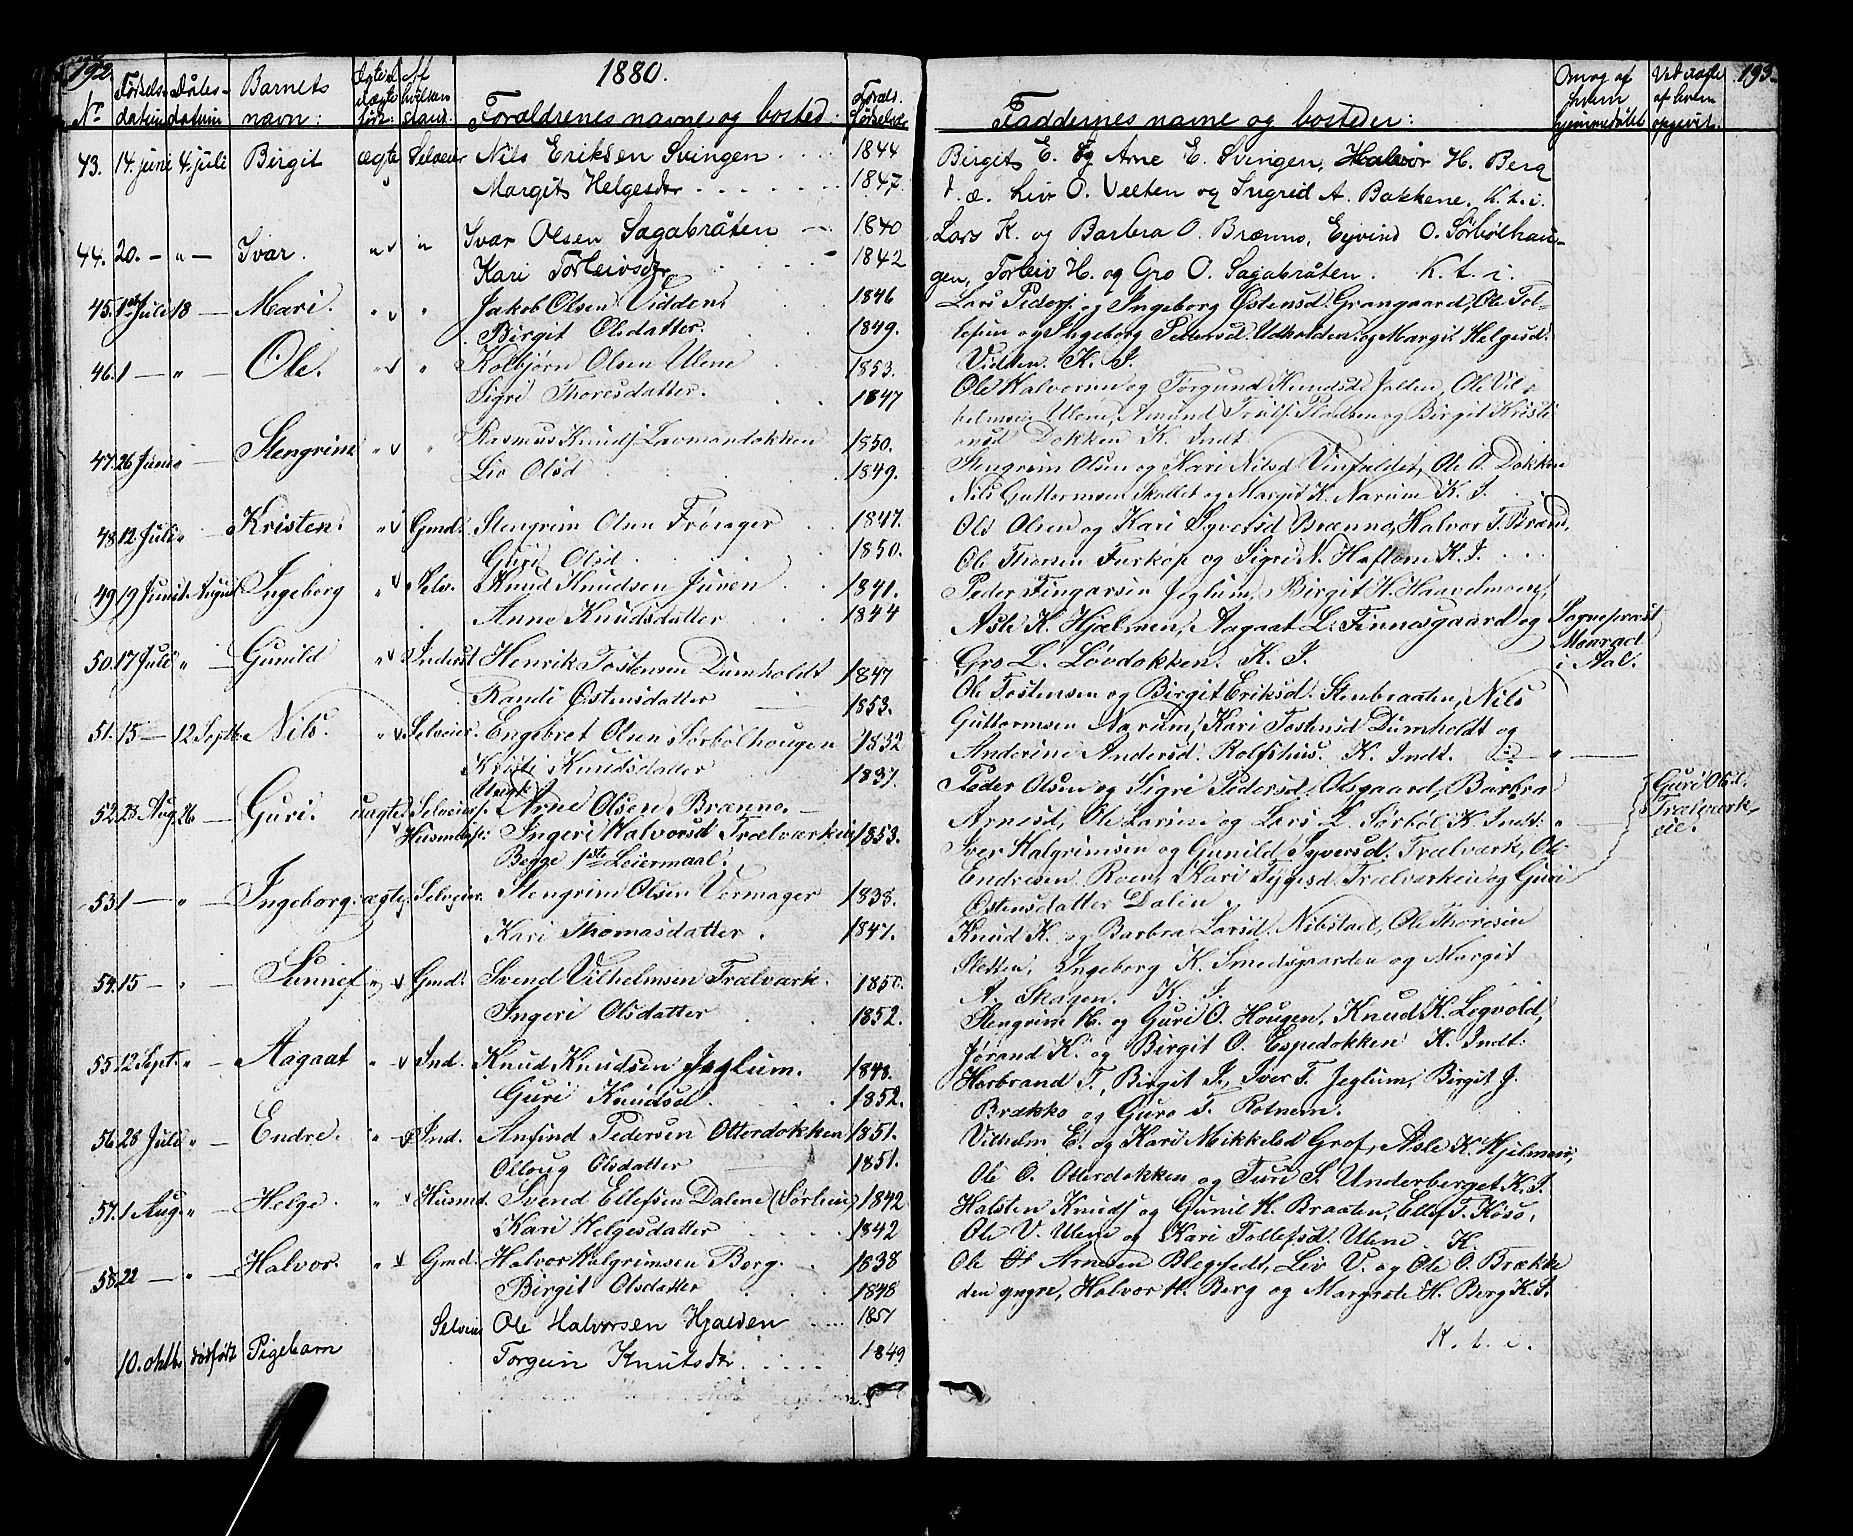 192
1880.
No
Fødsels-
datum
Daabs-
datum
Barnets
navn:
Forældrenes navne og bosted:
43. 14. juni 4. juli Birgit ægte Selveier Nils Eriksen Svingen 1844
Margit Helgesdr 1847.
44. 20. — „ — Ivar. „ „ Ivar Olsen Sagabråten 1840
Kari Torleivsdr 1842
45. 1ste Juli 18 — Mari. „ „ Jakob Olsen Vidden 1846
Birgit Olsdatter. 1849.
46. 1 — „ — Ole. „ „ Kolbjørn Olsen Ulene 1853.
Sigri Thoresdatter. 1847
47. 26 Juni „ — Stengrim „ „ Rasmus Knuds. Lavmandokken 1850.
Liv Olsd 1849.
48. 12 Juli „ Kristen. „ Gmd. Stengrim Olsen Frøsager 1847.
Guri Olsd 1850.
49. 19 Juni 1 August Ingeborg „ Selv. Knud Knudsen Juven 1841.
Anne Knudsdatter 1844
50. 17 Juli „ — Gunild „ Inderst Henrik Tostensen Dumholdt 1847
Randi Østensdatter 1853.
51. 15 — 12 Septbr Nils. „ Selveier. Engebret Olsen Sørbølhougen 1832
Kristi Knudsdatter 1837.
Ungk.
52. 23 Aug. 26 — Guri. uægte Selveiers. Arne Olsen Brænno.
Husmdsp: Ingeri Halvorsd Trælværkeie 1853.
Begge 1ste Leiermaal.
53. 1 — „ — Ingeborg. ægte Selveier. Stengrim Olsen Vermager 1838.
Kari Thomasdatter. 1847.
54. 15 — „ Sunnef „ Gmd. Svend Vilhelmsen Trælværk. 1850.
Ingeri Olsdatter 1852.
55. 12 Sept. „ — Aagaat „ Ind. Knud Knudsen Jeglum. 1848.
Guri Knudsd. 1852.
56. 28 Juli „ — Endre. „ Ind. Anfind Pedersen Otterdokken 1851.
Ollaug Olsdatter 1851.
57. 1 Aug „ — Helge. „ Husmd. Svend Ellefsen Dalene 1842
Kari Helgesdatter 1842
58. 22 — „ — Halvor. „ Gmd. Halvor Halgrimsen Berg. 1838
Birgit Olsdatter 1848
Selveier Ole Halvorsen Hjalden 1851
10. oktbr. dødfødt Pigebarn Torgun Knutsdr. 1849
193.
Faddernes navne og bosteder:
Om og af
hvem
hjemmedøbt
Ved uægte
af hvem
opgivet.
Birgit E. og Arne E. Svingen, Halvor H. Berg
d. æ. Liv O. Velten og Ingrid A. Bakkene. K. t. i.
Lars K. og Barbra O. Brænno, Eyvind O. Sørbølhau-
gen, Torleiv H. og Gro O. Sagabråten. K. t. i.
Lars Peders. og Ingeborg Østensd. Grangaard, Ole Tol-
lefsen og Ingeborg Pedersd. og Margit Helgesd.
Vidden. K. I.
Ole Halvorsen og Torgund Knudsd. Jalden, Ole Vil-
helmsen Ulene, Amund og Birgit Kristi
ansd Dokken K. Indt.
Stengrim Olsen og Kari Nilsd Vinfaldet, Ole O. Dokken
Nils Guttormsen Skollet og Margit K. Narum K. I.
Ole Olsen og Kari Syversd Brænno, Halvor T.
Ole Thomsen og Sigri N. Haftorn K. I.
Peder Fingarsen Jeglum, Birgit H. Haavelmoen,
Asle K. Hjælmen, Aagaat L. Finnesgaard og
Gro L. Løvdokken. K. I.
Sogneprest
i Aal.
Ole Tostensen og Birgit Eriksd. Stenbraaten, Nils
Guttormsen Narum, Kari Tostensd Dumholdt og
Anderine Andersd. Rolfshus. K. Indt.
Peder Olsen og Sigri Pedersd. Olsgaard, Barbra
Arnesd, Ole Larsen og Lars L. Sørbøl K. Indt.
Iver Halgrimsen og Gunild Syversd. Trælværk, Ole
Endresen Roen, Kari Trælværkeie og Guri
Østensdatter Dalen
Guri Olsd.
Trælværk-
eie.
Knud K. og Barbra Larsd. Nibstad, Ole Thoresen
Sletten, Ingeborg K. Smedsgaarden og Margit
A. Skagen. K. I.
Stengrim H. og Guri O. Hougen, Knud K. Legvold,
Jørand K. og Birgit O. Espedokken K. Indt:
Herbrand T., Birgit I., Iver T. Jeglum, Birgit J.
Brækko og Guro T. Rotnem.
Vilhelm E. og Kari Mikkelsd Grof, Asle K. Hjelmen,
Ole O. Otterdokken og Turi S. Underberget K. I.
Halsten Knuds og Gunil H. Braaten, Ellef T. Køso,
Ole V. Ulene og Kari Tollefsd. Ulene K.
Ole Arnesen Blegefedt, Liv V. og Ole O. Brække
den yngre, Halvor H. Berg og Margrete H. Berg K. I.
K. t. i.